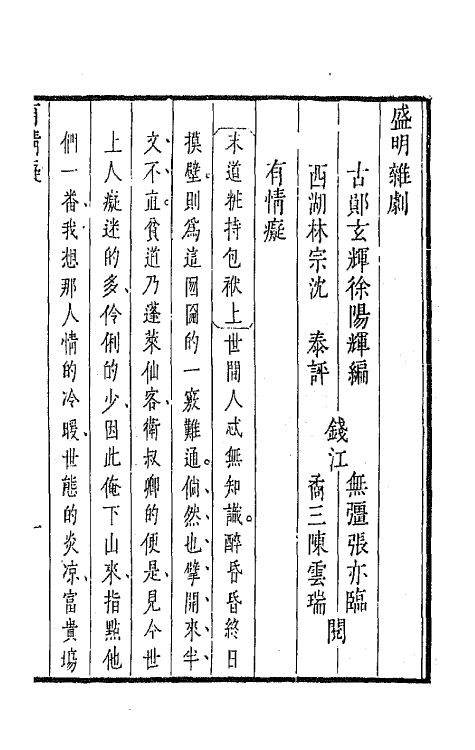 盛明雜劇
古鄖玄輝徐陽輝編
西湖林宗沈　泰評
錢江
無彊張亦臨
矞三陳雲瑞
閱
有情癡
末道粧持包袱上世間人忒無知識。醉昏昏終日
摸壁。則為這囫圇的一竅難通。倘然也擘開來、半
文不直。貧道乃蓬萊仙客衛叔卿的便是、見今世
上人癡迷的多、伶俐的少、因此俺下山來、指點他
們一番、我想那人情的冷暖、世態的炎凉、富貴塲
有情癡
一